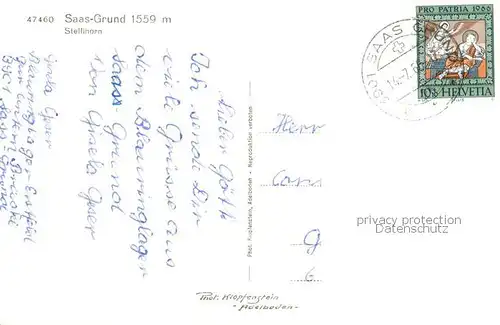 47460 Saas-Grund 1559 m
Stellihorn
PRO PATRIA 1966
10+10 HELVETIA
3901 SAAS-GRUND
14.7.6
Lieber Götti
Ich sende Dir
viele Grüsse aus
dem Blauringlager
Saas-Grund
von Greta Geser
Greta Geser
Blauringlager Ersfeld
3901 Saas-Grund
Herr
Car
G
6
Phot. Klopfenstein, Adelboden - Reproduktion verboten
Phot. Klopfenstein
-Adelboden-
privacy protection
Datenschutz